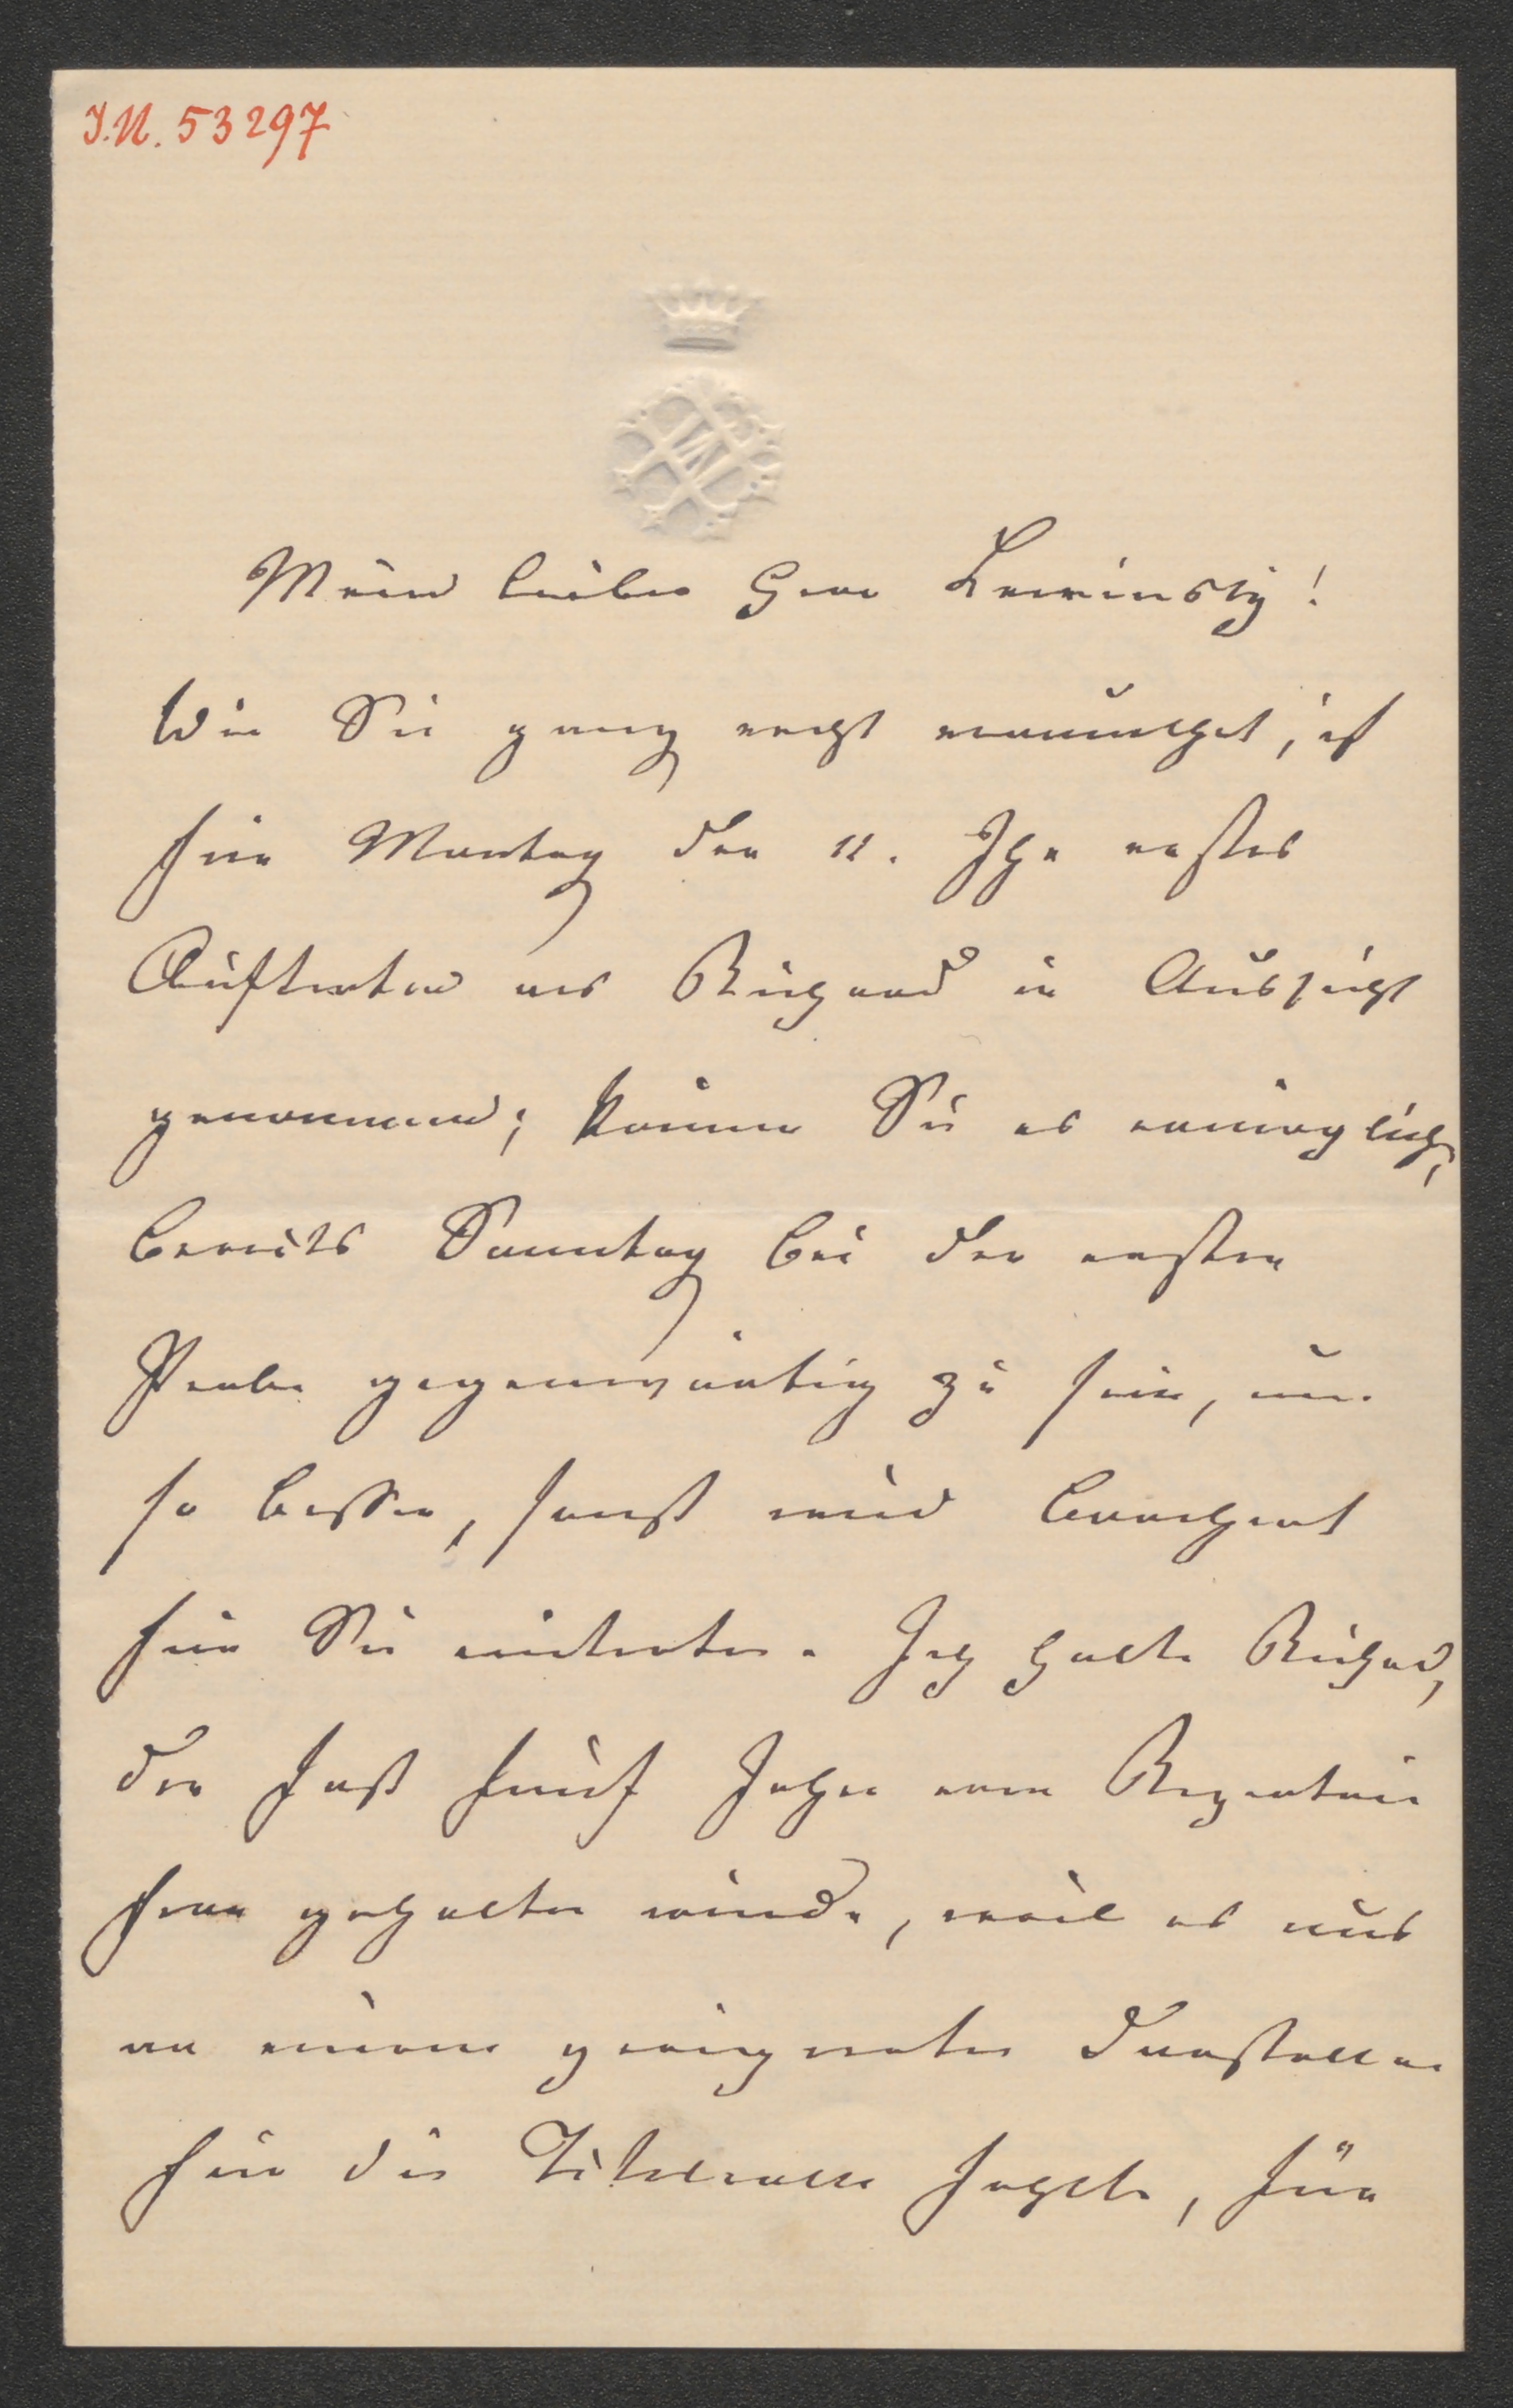 I.N. 53297
Mein lieber Herr Lewinsky!
Wie Sie ganz recht vermuthet, ist
für Montag den 11. Ihr erstes
Auftreten als Richard in Aussicht
genommen; können Sie es ermöglichen,
bereits Sonntag bei der ersten
Probe gegenwärtig zu sein, um
so besser, sonst wird
für Sie eintreten. Ich halte Richard,
der fast fünf Jahre vom Repertoir
fern gehalten wurde, weil es uns
an einem geeigneten Darsteller
für die Titelrolle fehlte, für